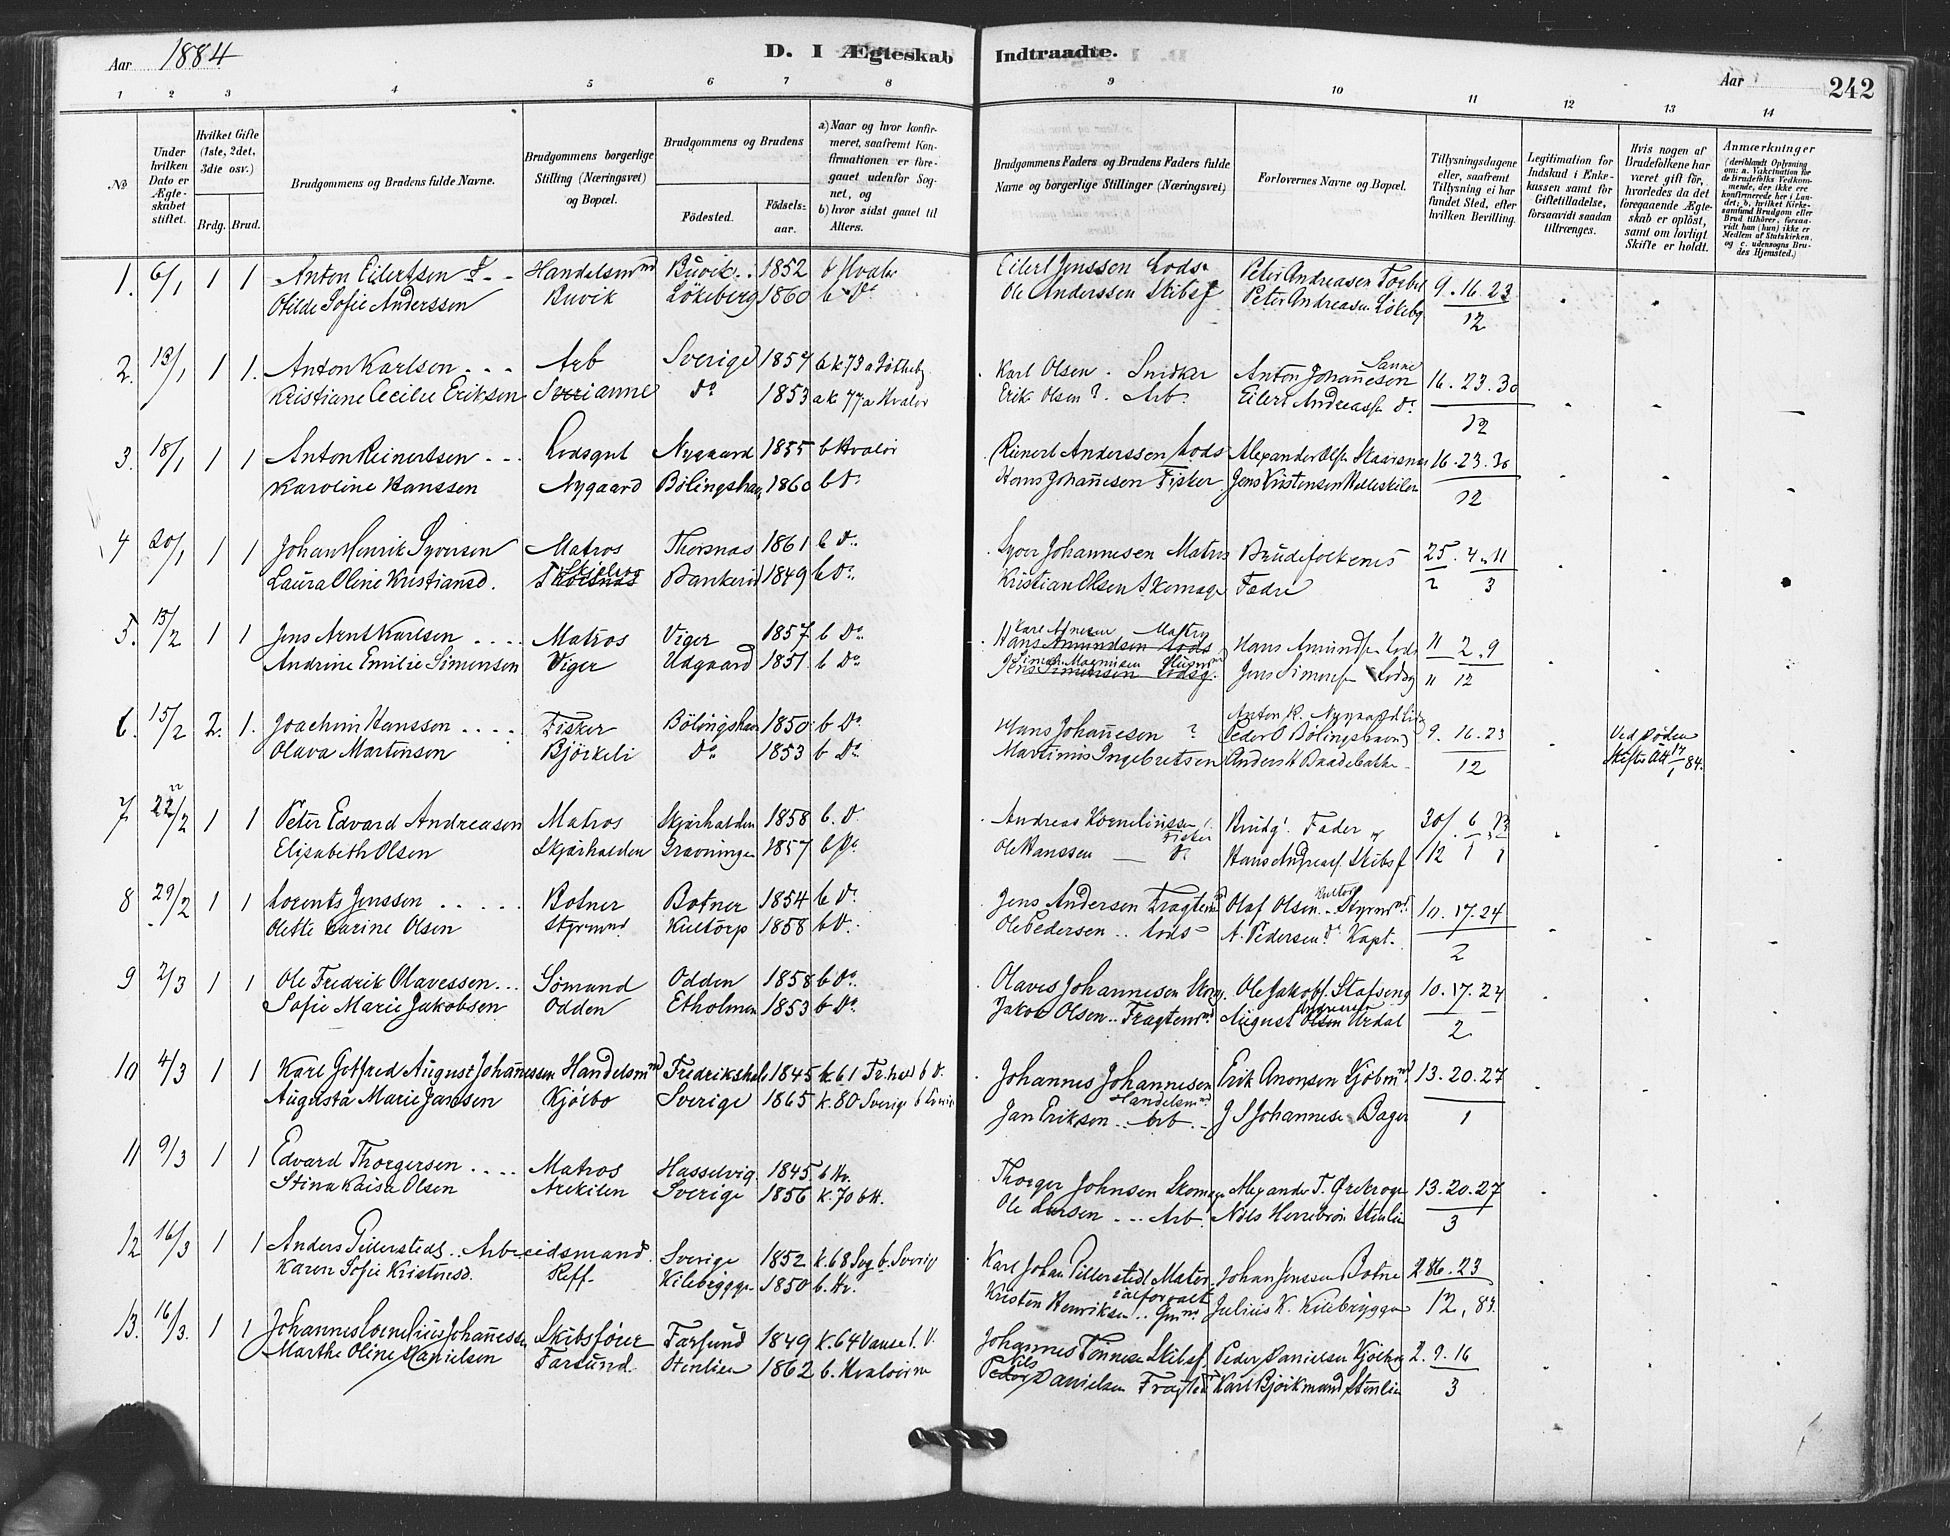 Aar 1884
D. I Ægteskab Indtraadte.
Aar 242
1 2 3 4 5 6 7 8 9 10 11 12 13 14
No
Under hvilken Dato er Ægteskabet stiftet.
Hvilket Gifte (1ste, 2det, 3die osv.)
Brdg. Brud.
Brudgommens og Brudens fulde Navne.
Brudgommens borgerlige Stilling (Næringsvei) og Bopæl.
Brudgommens og Brudens
Fødested.
Fødselsaar.
a) Naar og hvor konfirmeret, saafremt Konfirmationen er foregaaet udenfor Sognet, og
b) hvor sidst gaaet til Alters.
Brudgommens Faders og Brudens Faders fulde Navne og borgerlige Stillinger (Næringsvei)
Forlovernes Navne og Bopæl.
Tillysningsdagene eller, saafremt Tillysning ei har fundet Sted, efter hvilken Bevilling.
Legitimation for Indskud i Enkekassen samt for Giftetilladelse, forsaavidt saadan tiltrænges.
Hvis nogen af Brudefolkene har været gift før, hvorledes da det foregaaende Ægteskab er opløst, samt om lovligt Skifte er holdt.
Anmærkninger
1. 6/1 1 1 Anton Eilertsen F - - Handelsmnd Buvik. . 1852 b Hvaler Eilert Jenssen Lods Peter Andreasen 9. 16. 23
Otilde Sofie Anderssen Buvik Lökeberg 1860 b Do Ole Anderssen Skibsf Peter Andreasen Lökebg 12
2. 13/1 1 1. Anton Karlsen - - - Arb Sverige 1857 b k 73 a Karl Olsen . Snidker Anton Johannesen Sanne 16. 23. 30
Kristiane Cecilie Eriksen Do 1853 a k 77 a Hvaler Erik Olsen ? . Arb. Eilert Andreass Do 12
3. 18/1 1 1 Anton Reinertsen - - - Lodsgut Nygaard 1855 b Hvaler Reinert Anderssen Lods Alexander Ols 16. 23. 30
Karoline Hanssen Nygaard Bölingshavn 1860 b Do Hans Johannesen Fisker Jens Kristensen 12
4 20/1 1 1 Johan Henrik Syversen Matros Thorsnas 1861 b Do Syver Johannesen Matros Brudefolkenes 25. 4. 11
Laura Oline Kristiansd. Bankerud 1849 b Do. Kristian Olsen Skomage Fædre 2 3
5. 15/2 1 1 Jens Arnt Karlsen . . . . Matros Viger 1857 b Do Karl Matros Hans Amundsen Lods Hans Amunds Lods 11 2. 9
Andrine Emilie Simensen Viger Udgaard 1851 b Do Jens Simensen Lodsg. Jens Simens Lodsg 11 12
6. 15/2 2. 1. Joachim Hanssen . . . . Fisker Bölingshavn 1850 b Do Hans Johannesen ? Anton R. Nygaard Peder O Bölingshavn 9. 16. 23 Ved Døden
Olava Martinsen Björkeli Do 1853 b Do Martinius Ingebretsen Anders H Baadebakke 12 17/1 84.
7 22/2 1 1 Peter Edvard Andreasen Matros Skjærhalden 1858 b. Do Andreas Kornelinssen Fisker Brudg. Fader og 30/ 6 13
Elisabeth Olsen Skjærhalden Gravningen 1857 b Do Ole Hanssen — Do Hans Andreas. Skibsf 12 1 1
8 29/2 1 1 Lorents Jenssen . . . . . Botner Botner 1854 b Do. Jens Andersen Fragtemd Olaf Olsen Kultorp Styrmd 10. 17. 24
Olette Carine Olsen Styrmnd Kultorp 1858 b Do. Ole Pedersen . . Lods A. Pedersen Do Kapt. 2
9 2/3 1 1 Ole Fredrik Olavessen . . . Sömand Odden 1858 b Do. Olaves Johannesen Skomg. Ole Jakobs. Stafseng 10. 17. 24
Sofie Marie Jakobsen Odden Etholmen 1853 b Do Jakob Olsen . . Fragtemd August Andreasen Urdal 2
10 4/3 1 1 Karl Gotfred August Johannessen Handelsmnd Fredrikshald 1845 k. 61 Fr.hald b Do. Johannes Johannesen Handelsmnd. Erik Aronsen Kjöbmd 13. 20. 27
Augusta Marie Jansen Kjölbo Sverige 1865 k. 80 Sverige b Sverige Jan Eriksen . . Arb. . - J S Johannese Bager 1
11 9/3 1 1 Edvard Thorgersen . . . . Matros Hasselvig 1845 b Hv. Thorger Johnsen Skomage Alexander T. Ørekroge 13. 20. 27
Stina Kaisa Olsen Arekilen Sverige 1856 k. 70 b H. Ole Larsen . . . Arb. Nils Herrebröe Stenlie 3
12 16/3 1 1 Anders Pillerstedt . . Arbeidsmand. Sverige 1852 k. 68 Svg b. Sverig Karl Johan Pillerstedt Materialforvalt Johan Jenssen Botne 2 16. 23
Karen Sofie Kristensd. Reff. Kilebrygge 1850 b. Hv. Kristen Henriksen . . Julius K. Kilebrygga 12, 83.
13. 16/3. 1 1 Johannes Cornelius Johannessen Skibsförer Farsund 1849 k. 64 Vanse b. V. Johannes Tönnesen Skibsf. Peder Danielsen Kjölbo 2. 9. 16
Marthe Oline Danielsen Farsund. Stenlien 1862 b. Hvalöerne Nils Danielsen Fragtemd Karl Björkmand, Stenlie 3